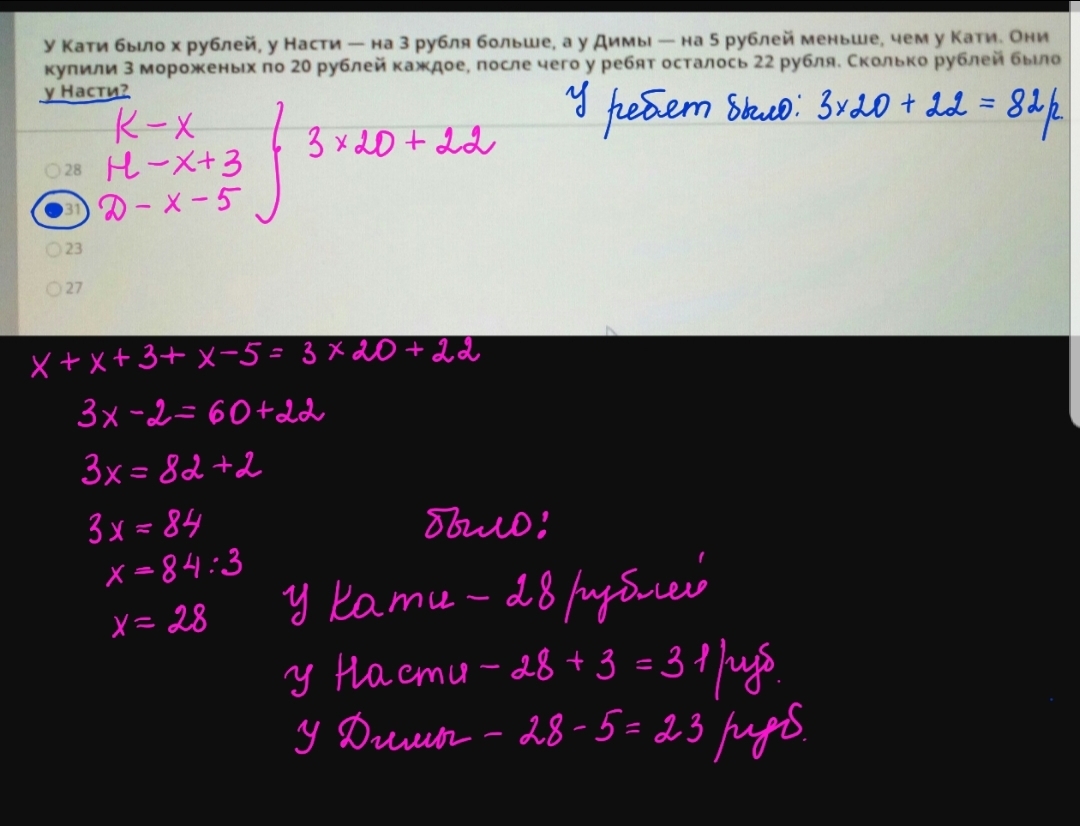 У Кати было x рублей, у Насти — на 3 рубля больше, а у Димы — на 5 рублей меньше, чем у Кати. Они
купили 3 мороженых по 20 рублей каждое, после чего у ребят осталось 22 рубля. Сколько рублей было
у Насти?
У ребят было: 3×20 + 22 = 82р.
К – х
Н – х+3
Д – х – 5
3×20+22
28
31
23
27
х + х + 3 + х – 5 = 3×20+22
3х – 2 = 60+22
3х = 82+2
3х = 84
х = 84:3
х = 28
было:
У Кати – 28 рублей
У Насти – 28 + 3 = 31 руб.
У Димы – 28 – 5 = 23 руб.